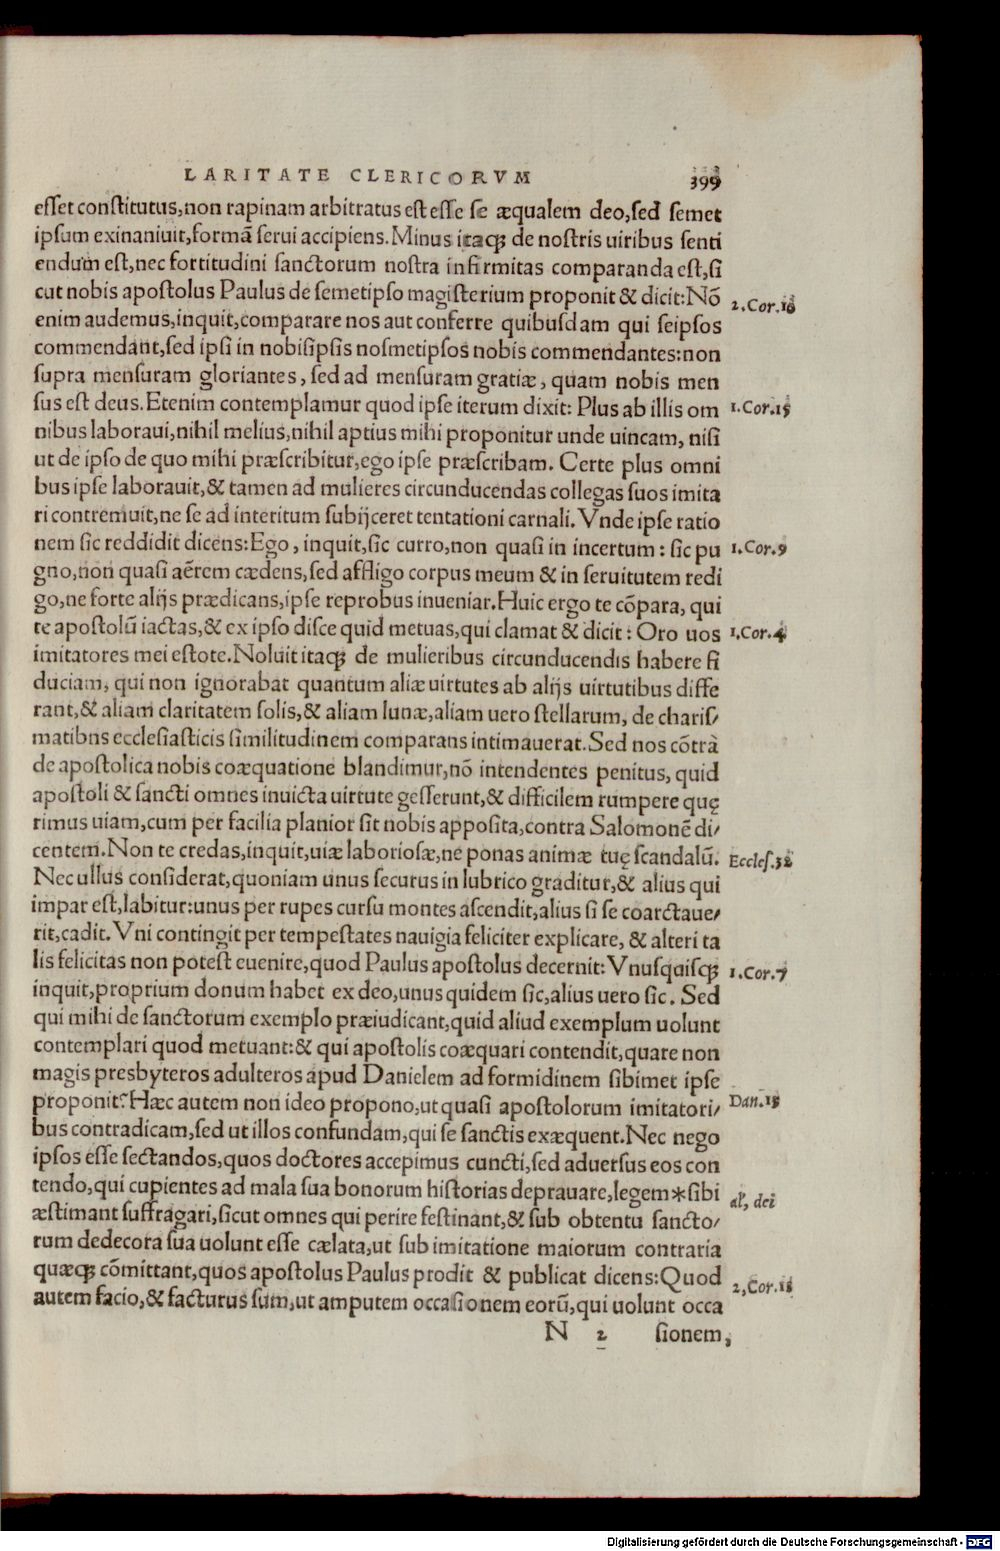 LARITATE CLERICORVM 399
esset constitutus,non rapinam arbitratus est esse se æqualem deo,sed semet
ipsum exinaniuit,formã serui accipiens.Minus itaq; de nostris uiribus senti
endum est,nec fortitudini sanctorum nostra infirmitas comparanda est,si
cut nobis apostolus Paulus de semetipso magisterium proponit & dicit:Nõ 2.Cor.10
enim audemus,inquit,comparare nos aut conferre quibusdam qui seipsos
commendant,sed ipsi in nobisipsis nosmetipsos nobis commendantes:non
supra mensuram gloriantes, sed ad mensuram gratiæ, quam nobis men
sus est deus.Etenim contemplamur quod ipse iterum dixit: Plus ab illis om 1.Cor.15
nibus laboraui,nihil melius,nihil aptius mihi proponitur unde uincam, nisi
ut de ipso de quo mihi præscribitur,ego ipse præscribam. Certe plus omni
bus ipse laborauit,& tamen ad mulieres circunducendas collegas suos imita
ri contremuit,ne se ad interitum subijceret tentationi carnali.Vnde ipse ratio
nem sic reddidit dicens:Ego, inquit,sic curro,non quasi in incertum: sic pu 1.Cor.9
gno,non quasi aërem cædens,sed affligo corpus meum & in seruitutem redi
go,ne forte alijs prædicans,ipse reprobus inueniar.Huic ergo te cõpara, qui
te apostolũ iactas,& ex ipso disce quid metuas,qui clamat & dicit: Oro uos 1.Cor.4
imitatores mei estote.Noluit itaq; de mulieribus circunducendis habere fi
duciam, qui non ignorabat quantum aliæ uirtutes ab alijs uirtutibus diffe
rant,& aliam claritatem solis,& aliam lunæ,aliam uero stellarum, de charis/
matibns ecclesiasticis similitudinem comparans intimauerat.Sed nos cõtrà
de apostolica nobis coæquatione blandimur,nõ intendentes penitus, quid
apostoli & sancti omnes inuicta uirtute gesserunt,& difficilem rumpere quę
rimus uiam,cum per facilia planior sit nobis apposita,contra Salomonẽ di/
centem.Non te credas,inquit,uiæ laboriosæ,ne ponas animæ tuę scandalũ. Eccles.32
Nec ullus considerat,quoniam unus securus in lubrico graditur,& alius qui
impar est,labitur:unus per rupes cursu montes ascendit,alius si se coarctaue/
rit,cadit.Vni contingit per tempestates nauigia feliciter explicare, & alteri ta
lis felicitas non potest euenire,quod Paulus apostolus decernit:Vnusquisq; 1.Cor.7
inquit,proprium donum habet ex deo,unus quidem sic,alius uero sic. Sed
qui mihi de sanctorum exemplo præiudicant,quid aliud exemplum uolunt
contemplari quod metuant:& qui apostolis coæquari contendit,quare non
magis presbyteros adulteros apud Danielem ad formidinem sibimet ipse
proponit?Hæc autem non ideo propono,ut quasi apostolorum imitatori/ Dan.13
bus contradicam,sed ut illos confundam,qui se sanctis exæquent.Nec nego
ipsos esse sectandos,quos doctores accepimus cuncti,sed aduersus eos con
tendo,qui cupientes ad mala sua bonorum historias deprauare,legem*sibi al, dei
æstimant suffragari,sicut omnes qui perire festinant,& sub obtentu sancto/
rum dedecora sua uolunt esse cælata,ut sub imitatione maiorum contraria
quæq; cõmittant,quos apostolus Paulus prodit & publicat dicens:Quod 2,Cor.11
autem facio,& facturus sum,ut amputem occasionem eorũ,qui uolunt occa
N 2 sionem,
Digitalisierung gefördert durch die Deutsche Forschungsgemeinschaft - DFG